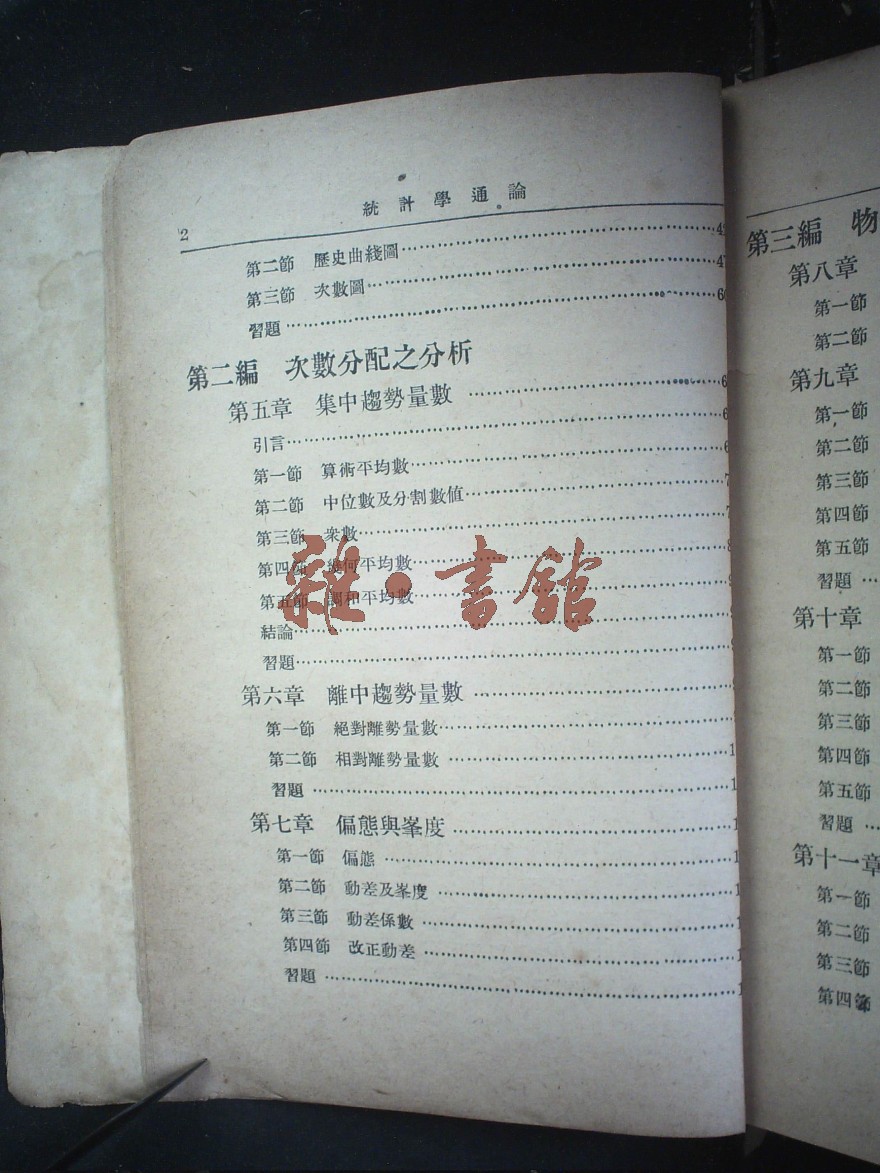 統計學通論
2
第二節 歷史曲綫圖
第三節 次數圖
習題
第二編 次數分配之分析
第五章 集中趨勢量數
引言
第一節 算術平均數
第二節 中位數及分割數值
第三節 衆數
第四節 幾何平均數
第五節 調和平均數
結論
習題
第六章 離中趨勢量數
第一節 絕對離勢量數
第二節 相對離勢量數
習題
第七章 偏態與峯度
第一節 偏態
第二節 動差及峯度
第三節 動差係數
第四節 改正動差
習題
雜·書館
第三編 物
第八章
第一節
第二節
第九章
第一節
第二節
第三節
第四節
第五節
習題
第十章
第一節
第二節
第三節
第四節
第五節
習題
第十一章
第一節
第二節
第三節
第四節